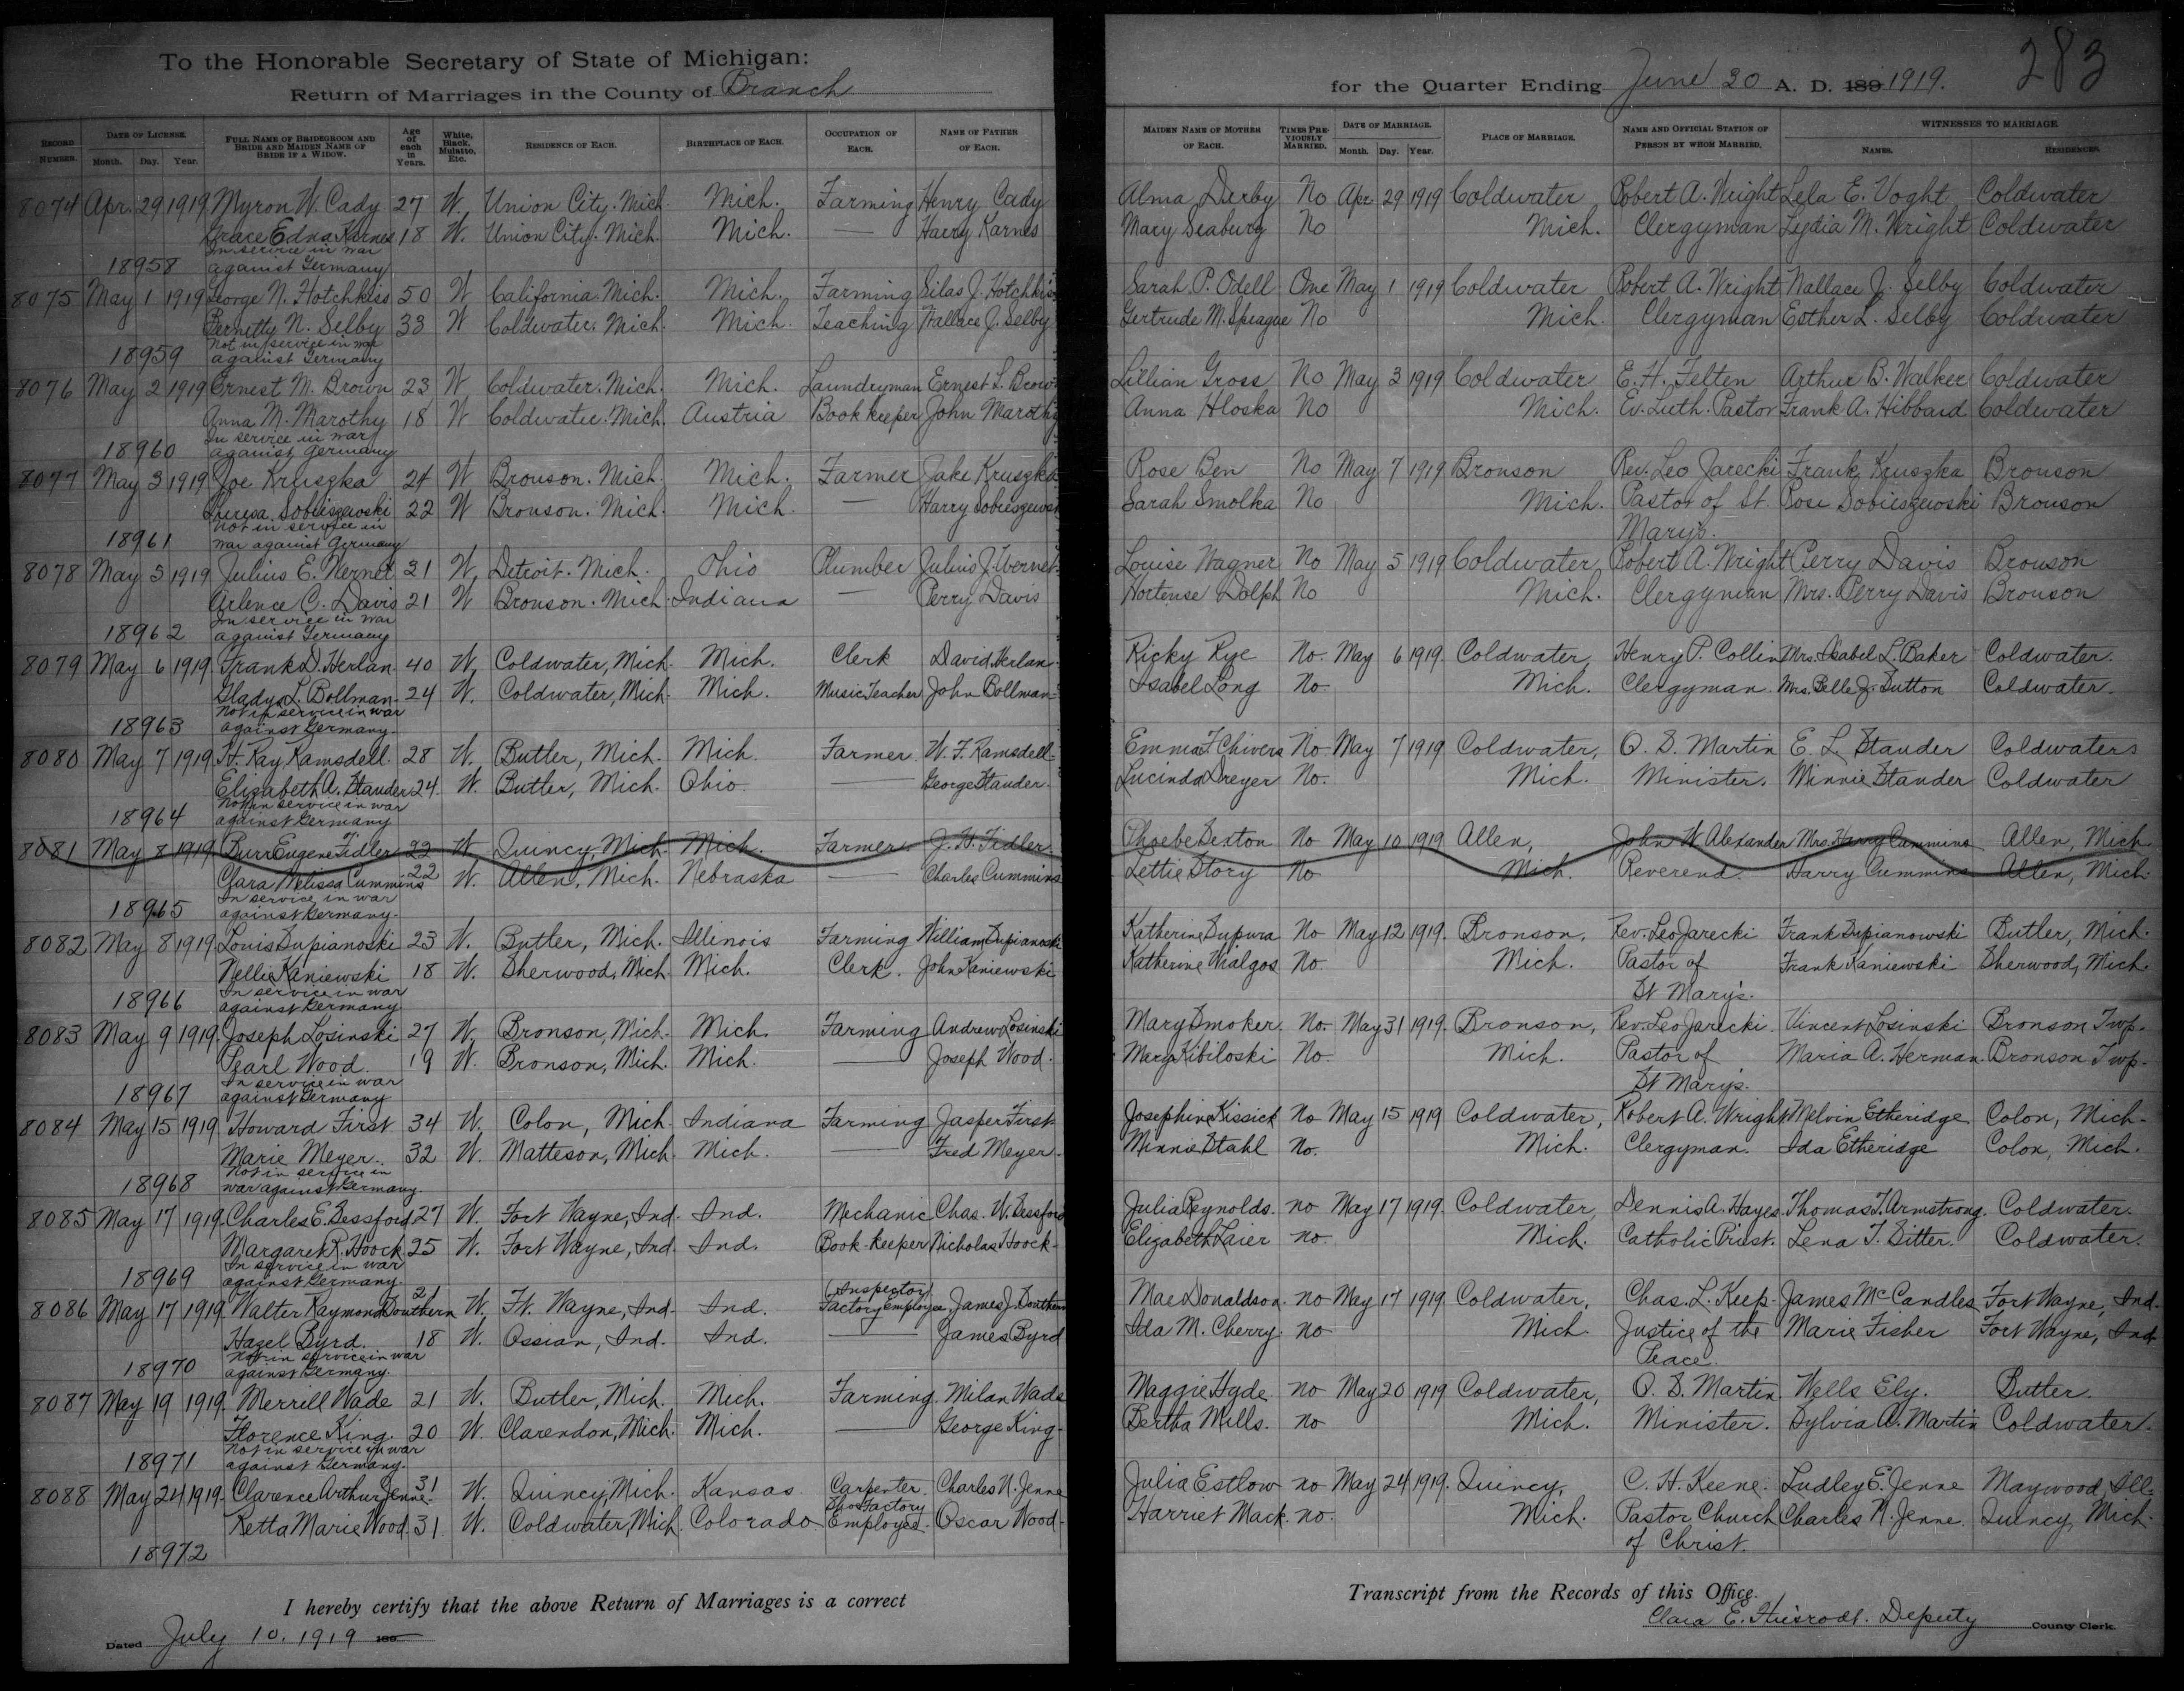 To the Honorable Secretary of State of Michigan:
Return of Marriages in the County of Branch
for the Quarter Ending June 20 A. D. 189 1919.
283
RECORD NUMBER. DATE OF LICENSE. Month. Day. Year. FULL NAME OF BRIDEGROOM AND BRIDE AND MAIDEN NAME OF BRIDE IF A WIDOW. Age of each in Years. White, Black, Mulatto, Etc. RESIDENCE OF EACH. BIRTHPLACE OF EACH. OCCUPATION OF EACH. NAME OF FATHER OF EACH. MAIDEN NAME OF MOTHER OF EACH. TIMES PREVIOUSLY MARRIED. DATE OF MARRIAGE. Month. Day. Year. PLACE OF MARRIAGE. NAME AND OFFICIAL STATION OF PERSON BY WHOM MARRIED. WITNESSES TO MARRIAGE. NAMES. RESIDENCES.
8074 Apr. 29 1919 Myron W. Cady 27 W. Union City. Mich. Mich. Farming Henry Cady Alma Derby No Apr. 29 1919 Coldwater Robert A. Wright Lela E. Voght Coldwater
Grace Edna Karnes 18 W. Union City. Mich. Mich. — Harry Karnes Mary Seaburg No Mich. Clergyman Lydia M. Wright Coldwater
In service in war
18958 against Germany
8075 May 1 1919 George N. Hotchkiss 50 W California Mich. Mich. Farming Silas J. Hotchkiss Sarah P. Odell One May 1 1919 Coldwater Robert A. Wright Wallace J. Selby Coldwater
Bernetty N. Selby 33 W Coldwater. Mich. Mich. Teaching Wallace J. Selby Gertrude M. Sprague No Mich. Clergyman Esther L. Selby Coldwater
Not in service in war
18959 against Germany
8076 May 2 1919 Ernest M. Brown 23 W Coldwater. Mich. Mich. Laundryman Ernest L. Brown Lillian Gross No May 3 1919 Coldwater E. H. Felten Arthur B. Walker Coldwater
Anna M. Marothy 18 W Coldwater. Mich. Austria Book keeper John Marothy Anna Hloska No Mich. Ev. Luth. Pastor Frank A. Hibbard Coldwater
In service in war
18960 against Germany
8077 May 3 1919 Joe Kruszka 24 W Bronson. Mich. Mich. Farmer Jake Kruszka Rose Ben No May 7 1919 Bronson Rev. Leo Jarecki Frank Kruszka Bronson
Theresa Sobieszewski 22 W Bronson. Mich. Mich. — Harry Sobieszewski Sarah Smolka No Mich. Pastor of St. Rose Sobieszewski Bronson
Not in service in Mary's.
18961 war against Germany
8078 May 5 1919 Julius E. Wernet 31 W. Detroit. Mich. Ohio Plumber Julius J. Wernet Louise Wagner No May 5 1919 Coldwater Robert A. Wright Perry Davis Bronson
Arlence C. Davis 21 W Bronson. Mich. Indiana — Perry Davis Hortense Dolph No Mich. Clergyman Mrs. Perry Davis Bronson
In service in war
18962 against Germany
8079 May 6 1919 Frank D. Herlan 40 W. Coldwater, Mich. Mich. Clerk David Herlan Ricky Rye No. May 6 1919. Coldwater, Henry P. Collin Mrs. Isabel L. Baker Coldwater.
Gladys L. Bollman 24 W. Coldwater, Mich. Mich. Music Teacher John Bollman Isabel Long No Mich. Clergyman. Mrs. Belle J. Sutton Coldwater.
Not in service in war
18963 against Germany.
8080 May 7 1919 H. Ray Ramsdell 28 W. Butler, Mich. Mich. Farmer. W. F. Ramsdell Emma F. Chivers No May 7 1919 Coldwater, O. S. Martin E. L. Stauder Coldwater
Elizabeth A. Stauder 24. W. Butler, Mich. Ohio — George Stauder. Lucinda Dreyer No. Mich. Minister. Minnie Stauder Coldwater
Not in service in war
18964 against Germany
8081 May 8 1919 Burr Eugene Fidler 22 W. Quincy, Mich. Mich. Farmer J. H. Fidler Phoebe Sexton No May 10 1919 Allen, John W Alexander Mrs. Harry Cummins Allen, Mich.
Clara Melissa Cummins 22 W. Allen, Mich. Nebraska — Charles Cummins Lettie Story No Mich. Reverend. Harry Cummins Allen, Mich.
In service in war
18965 against Germany.
8082 May 8 1919 Louis Supianoski 23 W. Butler, Mich. Illinois Farming William Supianoski Katherine Supura No May 12 1919. Bronson, Rev. Leo Jarecki Frank Supianowski Butler, Mich.
Nellie Kaniewski 18 W. Sherwood, Mich Mich. Clerk. John Kaniewski Katherine Wialgos No. Mich. Pastor of Frank Kaniewski Sherwood, Mich.
In service in war St Mary's.
18966 against Germany
8083 May 9 1919. Joseph Losinski 27 W. Bronson, Mich. Mich. Farming Andrew Losinski Mary Smoker. No. May 31 1919. Bronson, Rev. Leo Jarecki. Vincent Losinski Bronson Twp.
Pearl Wood. 19 W. Bronson, Mich. Mich. — Joseph Wood. Mary Kibiloski No. Mich. Pastor of Maria A. Herman. Bronson Twp.
In service in war St Mary's.
18967 against Germany
8084 May 15 1919. Howard First 34 W. Colon, Mich. Indiana Farming Jasper First Josephine Kissick No May 15 1919 Coldwater, Robert A. Wright Melvin Etheridge Colon, Mich.
Marie Meyer. 32 W. Matteson, Mich. Mich. — Fred Meyer. Minnie Stahl No. Mich. Clergyman. Ida Etheridge Colon, Mich.
Not in service in
18968 war against Germany.
8085 May 17 1919. Charles E. Bessford 27 W. Fort Wayne, Ind. Ind. Mechanic Chas. W. Bessford Julia Reynolds. no May 17 1919. Coldwater, Dennis A. Hayes. Thomas T. Armstrong. Coldwater.
Margaret R. Hoock 25 W. Fort Wayne, Ind. Ind. Book-keeper Nicholas Hoock Elizabeth Laier no. Mich. Catholic Priest. Lena T. Sitter. Coldwater.
In service in war
18969 against Germany.
8086 May 17 1919. Walter Raymond Douthern 21 W. Ft. Wayne, Ind. Ind. (Inspector) Factory employee James J. Douthern Mae Donaldson. no May 17 1919. Coldwater, Chas. L. Keep. James McCandles Fort Wayne, Ind.
Hazel Byrd. 18 W. Ossian, Ind. Ind. — James Byrd Ida M. Cherry. no Mich. Justice of the Marie Fisher Fort Wayne, Ind.
Not in service in war Peace.
18970 against Germany.
8087 May 19 1919. Merrill Wade 21 W. Butler, Mich. Mich. Farming. Milan Wade Maggie Hyde no May 20 1919 Coldwater, O. S. Martin. Wells Ely. Butler.
Florence King. 20 W. Clarendon, Mich. Mich. — George King. Bertha Mills. no Mich. Minister. Sylvia A. Martin Coldwater.
Not in service in war
18971 against Germany.
8088 May 24 1919. Clarence Arthur Jenne 31 W. Quincy, Mich. Kansas. Carpenter. Charles N. Jenne Julia Estlow no May 24 1919. Quincy, C. H. Keene. Ludley E. Jenne Maywood, Ill.
Retta Marie Wood. 31. W. Coldwater, Mich. Colorado Shoe Factory Employee. Oscar Wood. Harriet Mack. no. Mich. Pastor Church Charles N. Jenne. Quincy, Mich.
18972 of Christ.
I hereby certify that the above Return of Marriages is a correct Transcript from the Records of this Office.
Dated July 10. 1919 189
Clara E. Deputy County Clerk.